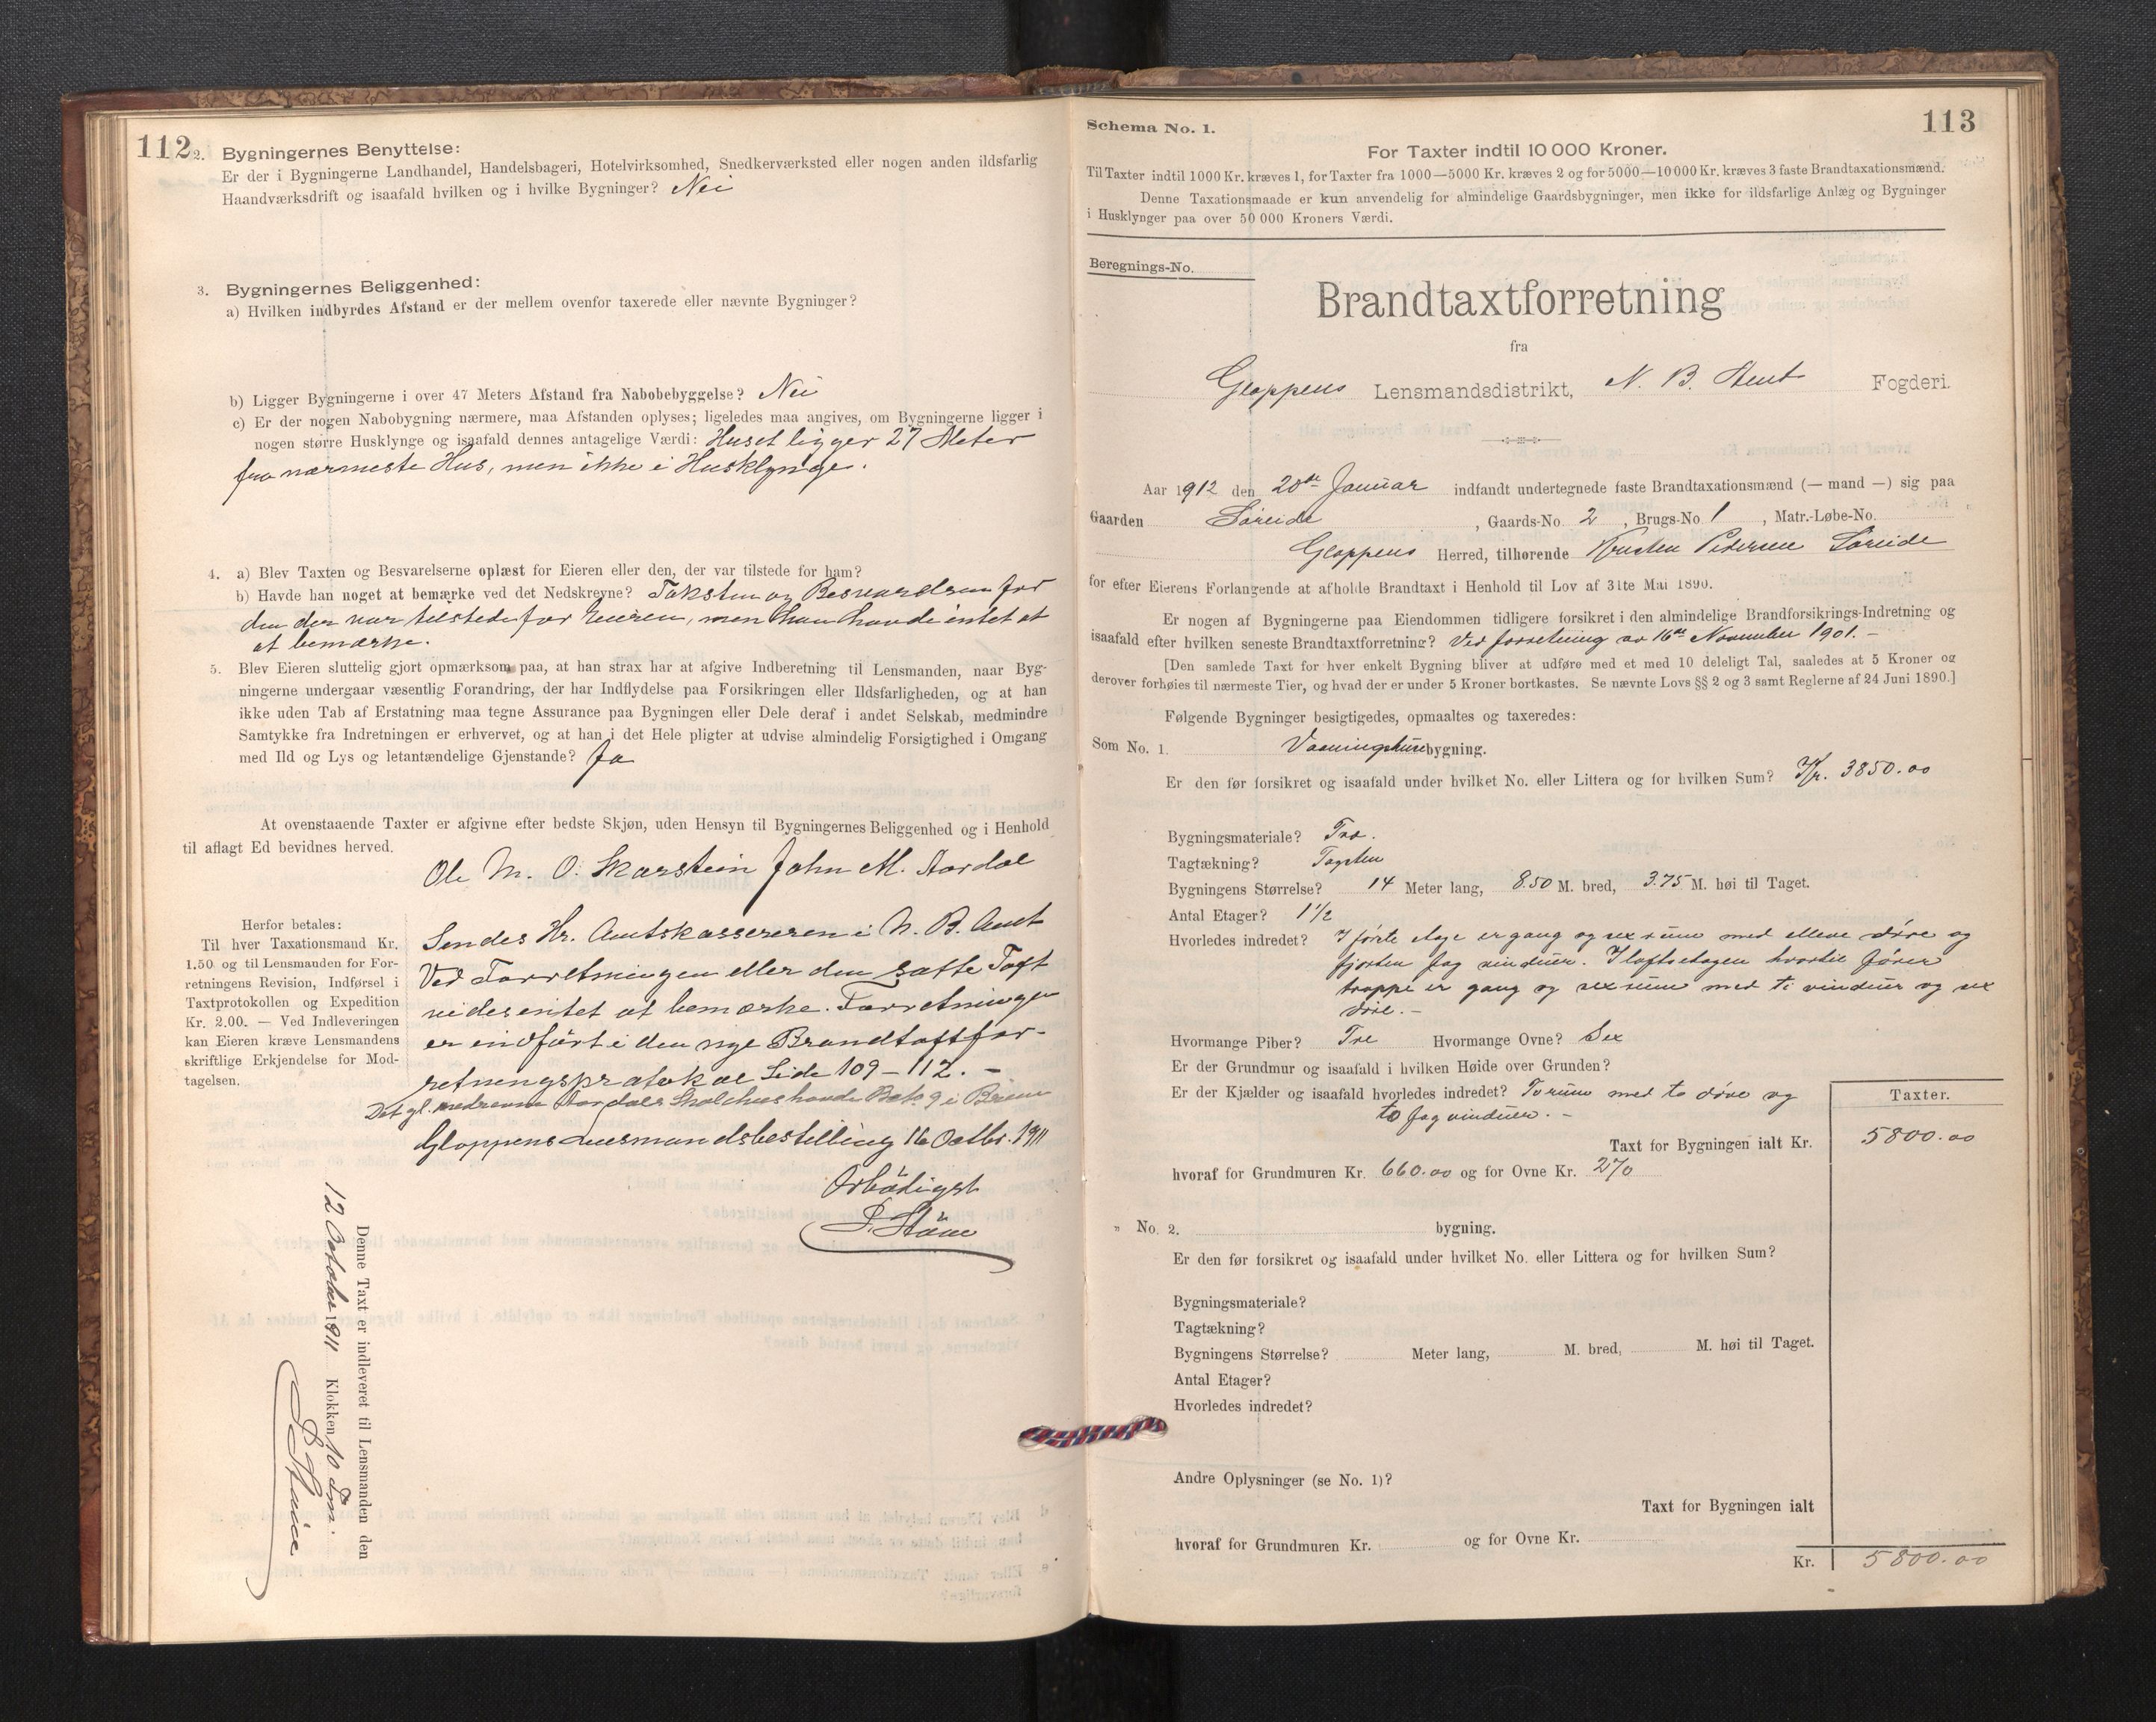 112
2. Bygningernes Benyttelse:
Er der i Bygningerne Landhandel, Handelsbageri, Hotelvirksomhed, Snedkerværksted eller nogen anden ildsfarlig
Haandværksdrift og isaafald hvilken og i hvilke Bygninger? Nei
3. Bygningernes Beliggenhed:
a) Hvilken indbyrdes Afstand er der mellem ovenfor taxerede eller nævnte Bygninger?
b) Ligger Bygningerne i over 47 Meters Afstand fra Nabobebyggelse? Nei
c) Er der nogen Nabobygning nærmere, maa Afstanden oplyses; ligeledes maa angives, om Bygningerne ligger i
nogen større Husklynge og isaafald dennes antagelige Værdi: Huset ligger 27 Meter
fra nærmeste Hus, men ikke i Husklynge.
4. a) Blev Taxten og Besvarelserne oplæst for Eieren eller den, der var tilstede for ham?
b) Havde han noget at bemærke ved det Nedskrevne? Taksten og Besvarelsen for
den der var tilstede for Eieren, men han havde intet at
at bemærke.
5. Blev Eieren sluttelig gjort opmærksom paa, at han strax har at afgive Indberetning til Lensmanden, naar Byg-
ningerne undergaar væsentlig Forandring, der har Indflydelse paa Forsikringen eller Ildsfarligheden, og at han
ikke uden Tab af Erstatning maa tegne Assurance paa Bygningen eller Dele deraf i andet Selskab, medmindre
Samtykke fra Indretningen er erhvervet, og at han i det Hele pligter at udvise almindelig Forsigtighed i Omgang
med Ild og Lys og letantændelige Gjenstande? Ja
At ovenstaaende Taxter er afgivne efter bedste Skjøn, uden Hensyn til Bygningernes Beliggenhed og i Henhold
til aflagt Ed bevidnes herved.
Ole M. O. Skarstein John M. Aardal
Herfor betales:
Til hver Taxationsmand Kr.
1.50 og til Lensmanden for For-
retningens Revision, Indførsel i
Taxtprotokollen og Expedition
Kr. 2.00. — Ved Indleveringen
kan Eieren kræve Lensmandens
skriftlige Erkjendelse for Mod-
tagelsen.
Sendes Hr. Amtskassereren i N. B. Amt
Ved Forretningen eller den satte Taxt
vides intet at bemærke. Forretningen
er indført i den nye Brandtaxtfor-
retningsprotokol Side 109 – 112. –
Det gl. Aardals Skolehus havde
Gloppens Lensmandsbestilling 16 Octbr. 1911
Ærbødigst
Denne Taxt er indleveret til Lensmanden den
12 October 1911 Klokken 10 Fm.
113
Schema No. 1.
For Taxter indtil 10 000 Kroner.
Til Taxter indtil 1000 Kr. kræves 1, for Taxter fra 1000—5000 Kr. kræves 2 og for 5000—10 000 Kr. kræves 3 faste Brandtaxationsmænd.
Denne Taxationsmaade er kun anvendelig for almindelige Gaardsbygninger, men ikke for ildsfarlige Anlæg og Bygninger
i Husklynger paa over 50 000 Kroners Værdi.
Beregnings-No.
Brandtaxtforretning
fra
Gloppens Lensmandsdistrikt, N. B. Amt Fogderi.
Aar 1912 den 20de Januar indfandt undertegnede faste Brandtaxationsmænd (— mand —) sig paa
Gaarden Søreide, Gaards-No. 2, Brugs-No. 1, Matr.-Løbe-No.
Gloppens Herred, tilhørende Kristen Pedersen Søreide
for efter Eierens Forlangende at afholde Brandtaxt i Henhold til Lov af 31te Mai 1890.
Er nogen af Bygningerne paa Eiendommen tidligere forsikret i den almindelige Brandforsikrings-Indretning og
isaafald efter hvilken seneste Brandtaxtforretning? Ved forretning av 16de November 1901. –
[Den samlede Taxt for hver enkelt Bygning bliver at udføre med et med 10 deleligt Tal, saaledes at 5 Kroner og
derover forhøies til nærmeste Tier, og hvad der er under 5 Kroner bortkastes. Se nævnte Lovs §§ 2 og 3 samt Reglerne af 24 Juni 1890.]
Følgende Bygninger besigtigedes, opmaaltes og taxeredes:
Som No. 1. Vaaningshusbygning.
Er den før forsikret og isaafald under hvilket No. eller Littera og for hvilken Sum? Kr. 3850.00
Bygningsmateriale? Træ.
Tagtækning? Tagsten
Bygningens Størrelse? 14 Meter lang, 8.50 M. bred, 3.75 M. høi til Taget.
Antal Etager? 1½
Hvorledes indredet? I første etage er gang og sex rum med elleve døre og
fjorten fag vinduer. I loftsetagen hvortil fører
trappe er gang og sex rum med ti vinduer og sex
døre. –
Hvormange Piber? Tre Hvormange Ovne? Sex
Er der Grundmur og isaafald i hvilken Høide over Grunden?
Er der Kjælder og isaafald hvorledes indredet? To rum med to døre og
to fag vinduer. –
Taxter.
Taxt for Bygningen ialt Kr. 5800.00
hvoraf for Grundmuren Kr. 660.00 og for Ovne Kr. 270
„ No. 2. bygning.
Er den før forsikret og isaafald under hvilket No. eller Littera og for hvilken Sum?
Bygningsmateriale?
Tagtækning?
Bygningens Størrelse? Meter lang, M. bred, M. høi til Taget.
Antal Etager?
Hvorledes indredet?
Andre Oplysninger (se No. 1)?
Taxt for Bygningen ialt
hvoraf for Grundmuren Kr. og for Ovne Kr.
Kr. 5800.00